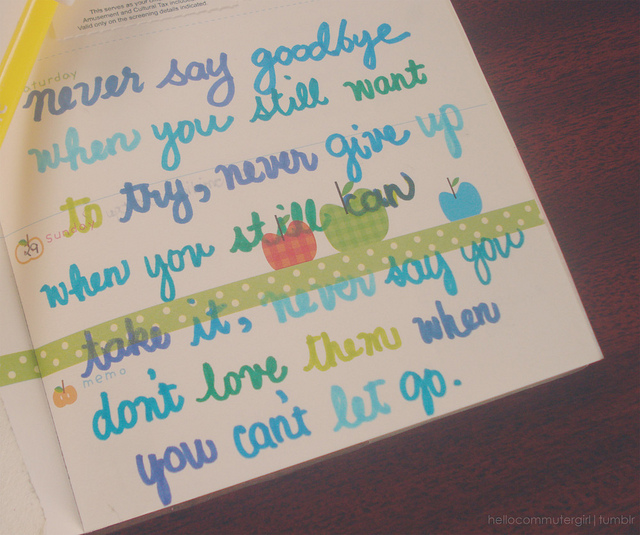 This serves as your
Amusement and Cultural Tax
Valid only on the screening details indicated.
aturday
never say goodbye
when you still want
to try, never give up
29 Sunday
when you still can
take it, never say you
memo
don't love them when
you can't let go.
hellocommutergirl | tumblr